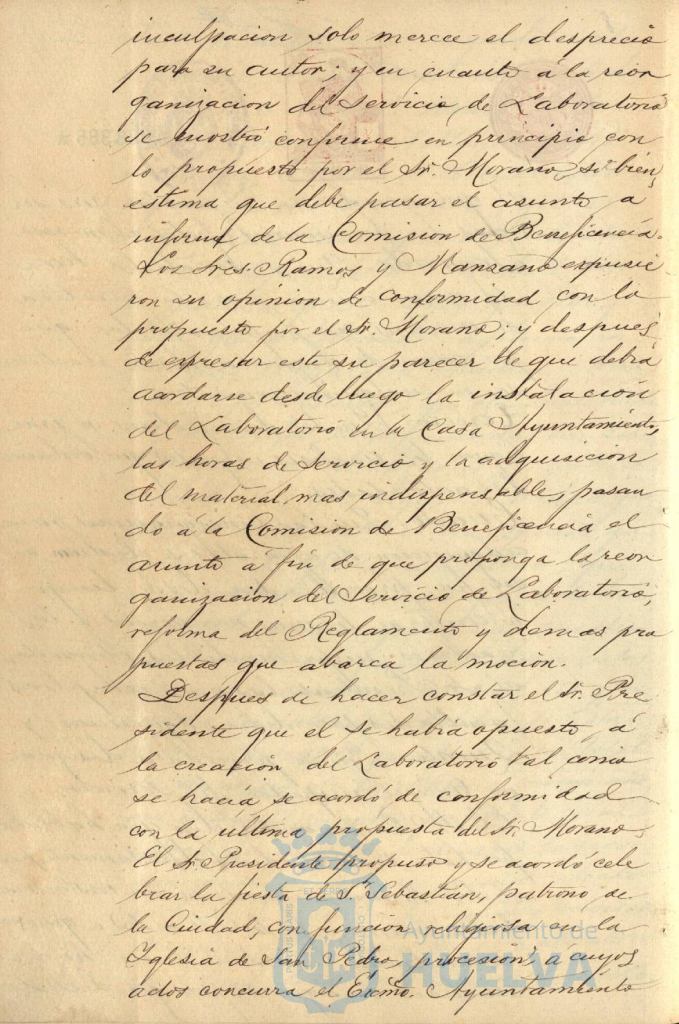 inculpacion solo merece el desprecio
para su autor; y en cuanto á la reor
ganizacion del Servicio de Laboratorio
se mostró conforme en principio con
lo propuesto por el Sr. Morano, si bien,
estima que debe pasar el asunto a
informe de la Comision de Beneficencia.
Los Sres. Ramos y Manzano expusie
ron su opinion de conformidad con lo
propuesto por el Sr. Morano; y despues,
de expresar este su parecer de que debia
acordarse desde luego la instalacion
del Laboratorio en la Casa Ayuntamiento,
las horas de servicio y la adquisicion
del material mas indispensable, pasan
do á la Comision de Beneficencia el
asunto á fin de que proponga la reor
ganizacion del Servicio de Laboratorio,
reforma del Reglamento y demas pro
puestas que abarca la moción.
Despues de hacer constar el Sr. Pre
sidente que el se habia opuesto, á
la creación del Laboratorio tal como
se hacia se acordó de conformidad
con la ultima propuesta del Sr. Morano.
El Sr. Presidente propuso y se acordó cele
brar la fiesta de Sn. Sebastián, patrono de
la Ciudad, con función religiosa en la
Iglesia de San Pedro, procesion, a cuyos
actos concurra el Excmo. Ayuntamiento
Ayuntamiento de
HUELVA